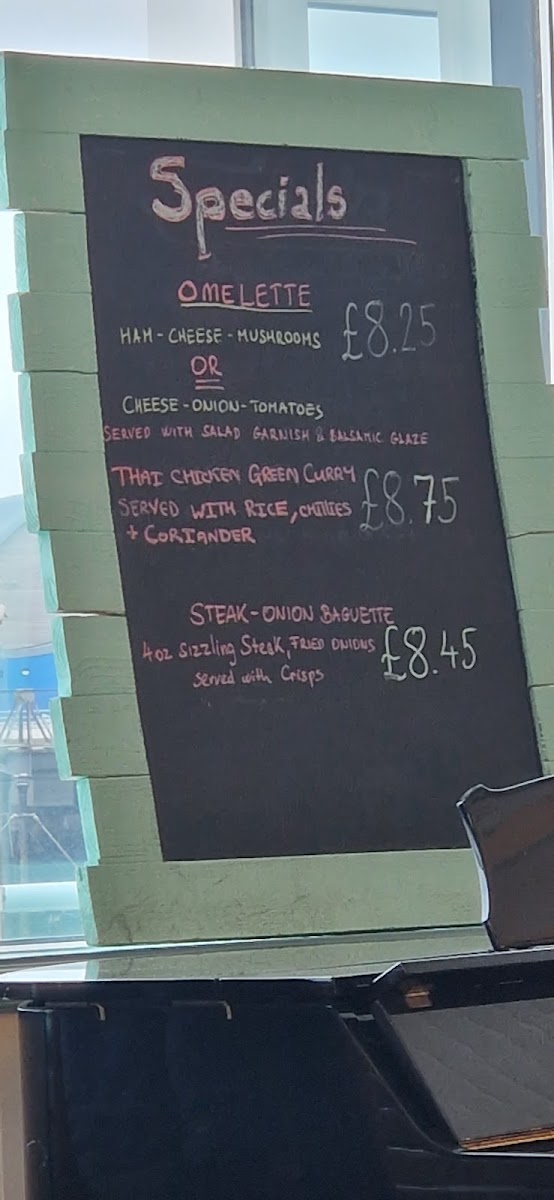 Specials
OMELETTE
HAM-CHEESE-MUSHROOMS £8.25
OR
CHEESE-ONION-TOMATOES
SERVED WITH SALAD GARNISH & BALSAMIC GLAZE
THAI CHICKEN GREEN CURRY
SERVED WITH RICE, CHILLIES £8.75
+ CORIANDER
STEAK-ONION BAGUETTE
4oz Sizzling Steak, FRIED ONIONS £8.45
served with Crisps